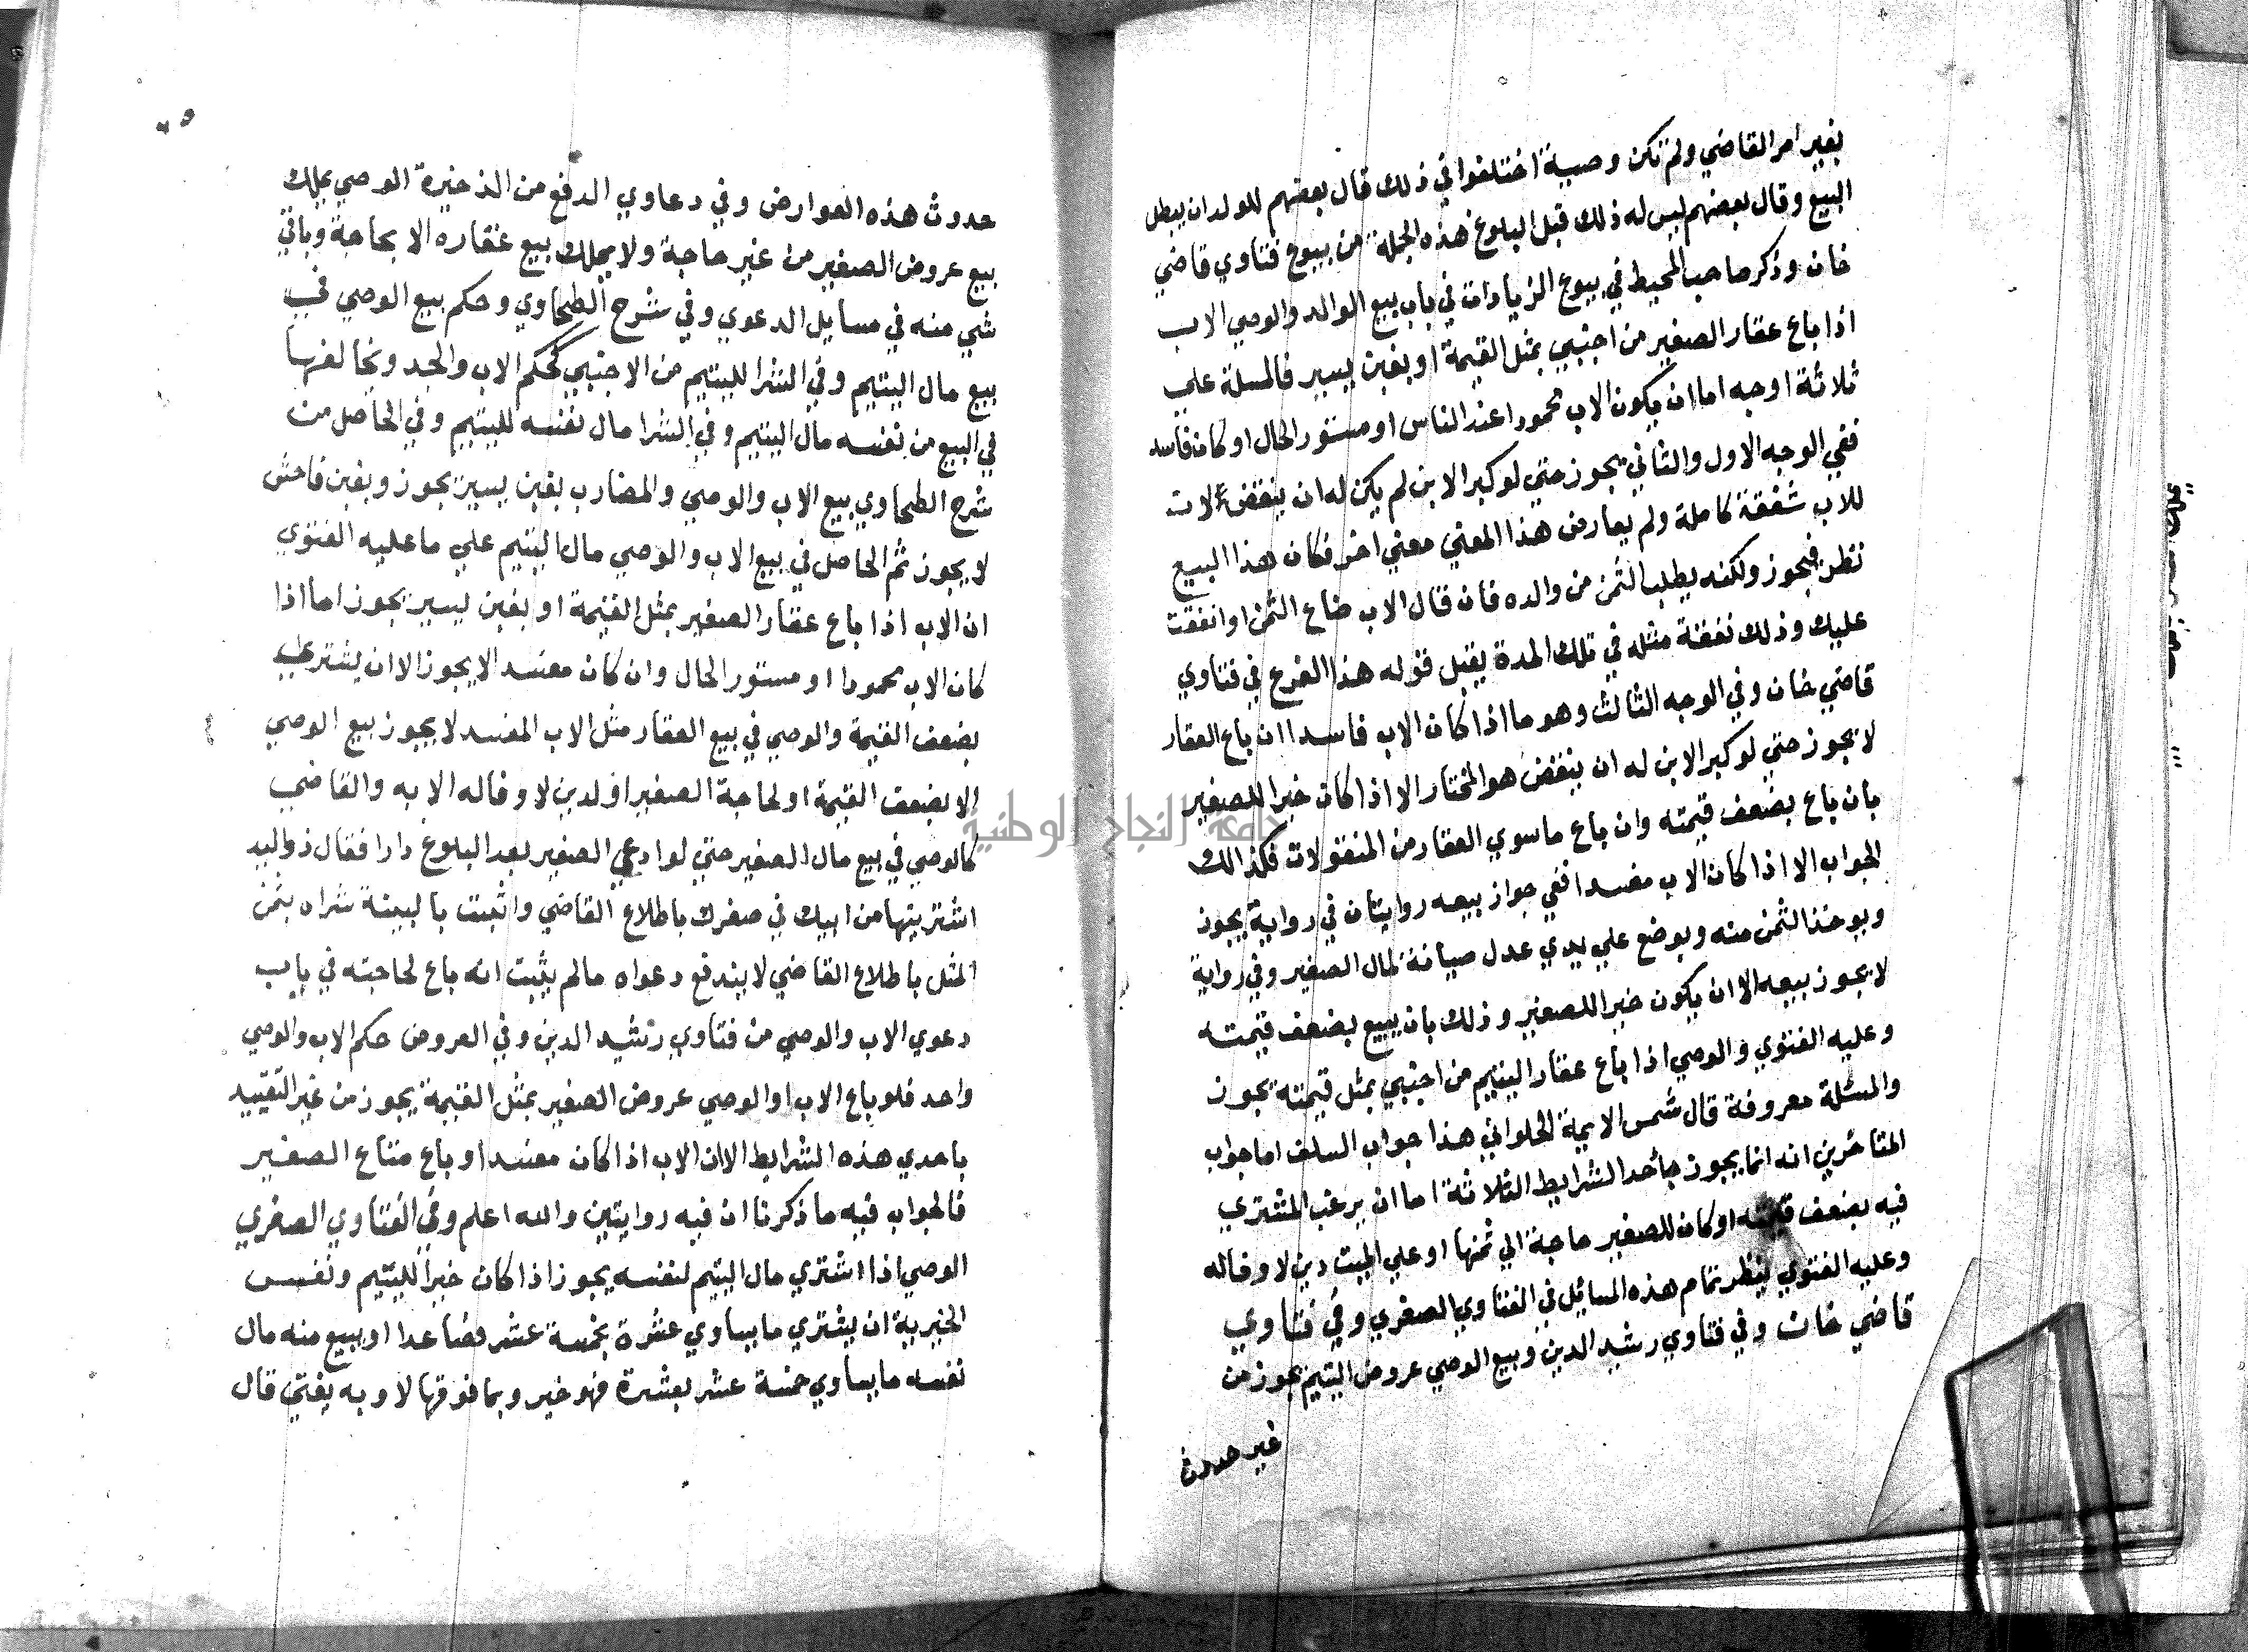 بغير امر القاضي ولم تكن وصية اختلفوا في ذلك قال بعضهم للولد ان يبطل
البيع وقال بعضهم ليس له ذلك قبل البلوغ هذه الجملة من بيوع فتاوي قاضي
خان وذكر صاحب المحيط في بيوع الزيادات في باب بيع الوالد والوصي الاب
اذا باع عقار الصغير من اجنبي بمثل القيمة او بغبن يسير فالمسلة علي
ثلاثة اوجه اما ان يكون الاب محمودا عند الناس او مستور الحال او كان فاسد
ففي الوجه الاول والثاني يجوز حتي لو كبر الابن لم يكن له ان ينقض لان
للاب شفقة كاملة ولم يعارض هذا المعني معني اخر فكان هذا البيع
نظر فيجوز ولكنه يطلب الثمن من والده فان قال الاب ضاع الثمن او انفقت
عليك وذلك نفقة مثله في تلك المدة يقبل قوله هذا الفرع في فتاوي
قاضي خان وفي الوجه الثالث وهو ما اذا كان الاب فاسدا ان باع العقار
لا يجوز حتي لو كبر الابن له ان ينقض هو المختار الا اذا كان خيرا للصغير
بان باع بضعف قيمته وان باع ما سوي العقار من المنقولات فكذالك
الجواب الا اذا كان الاب مفسدا ففي جواز بيعه روايتان في رواية يجوز
ويوخذ الثمن منه ويوضع علي يدي عدل صيانة لمال الصغير وفي رواية
لا يجوز بيعه الا ان يكون خيرا للصغير وذلك بان يبيع بضعف قيمته
وعليه الفتوي والوصي اذا باع عقار اليتيم من اجنبي بمثل قيمته يجوز
والمسئلة معروفة قال شمس الايمة الحلواني هذا جواب السلف اما جواب
المتاخرين انه انما يجوز باحد الشرايط الثلاثة اما ان يرغب المشتري
فيه بضعف قيمته او كان للصغير حاجة الي ثمنها او علي الميت دين لا وفا له
وعليه الفتوي ينظر تمام هذه المسائل في الفتاوي الصغري وفي فتاوي
قاضي خان وفي فتاوي رشيد الدين وبيع الوصي عروض اليتيم يجوز من
غير حدوث
حدوث هذه العوارض وفي دعاوي الدفع من الذخيرة الوصي يملك
بيع عروض الصغير من غير حاجة ولا يملك بيع عقاره الا بحاجة وياتي
شي منه في مسايل الدعوي وفي شرح الطحاوي وحكم بيع الوصي في
بيع مال اليتيم وفي الشرا لليتيم من الاجنبي كحكم الاب والجد ونخالفهما
في البيع من نفسه مال اليتيم وفي الشرا مال نفسه لليتيم وفي الحاصل من
شرح الطحاوي بيع الاب والوصي والمضارب بغبن يسير يجوز وبغبن فاحش
لا يجوز ثم الحاصل في بيع الاب والوصي مال اليتيم علي ما عليه الفتوي
ان الاب اذا باع عقار الصغير بمثل القيمة او بغبن يسير يجوز اما اذا
كان الاب محمودا او مستور الحال وان كان مفسد الا يجوز الا ان يشتري
بضعف القيمة والوصي في بيع العقار مثل الاب المفسد لا يجوز بيع الوصي
الا بضعف القيمة او لحاجة الصغير او لدين لا وفا له الا به والقاضي
كالوصي في بيع مال الصغير حتي لو ادعي الصغير بعد البلوغ دارا فقال ذو اليد
اشتريتها من ابيك في صغرك باطلاع القاضي واثبت بالبينة شراه بثمن
المثل باطلاع القاضي لا يندفع دعواه مالم يثبت انه باع لحاجته في باب
دعوي الاب والوصي من فتاوي رشيد الدين وفي العروض حكم الاب والوصي
واحد فلو باع الاب او الوصي عروض الصغير بمثل القيمة يجوز من غير التقييد
باحدي هذه الشرايط الا ان الاب اذا كان مفسدا وباع متاع الصغير
فالجواب فيه ما ذكرنا ان فيه روايتين والله اعلم وفي الفتاوي الصغري
الوصي اذا اشتري مال اليتيم لنفسه يجوز اذا كان خيرا لليتيم ونفس
الخيرية ان يشتري ما يساوي عشرة بخمسة عشر فصاعدا او يبيع منه مال
نفسه ما يساوي خمسة عشر بعشرة فهو خير وبما فوقها لا وبه يفتي قال
جامعة النجاح الوطنية